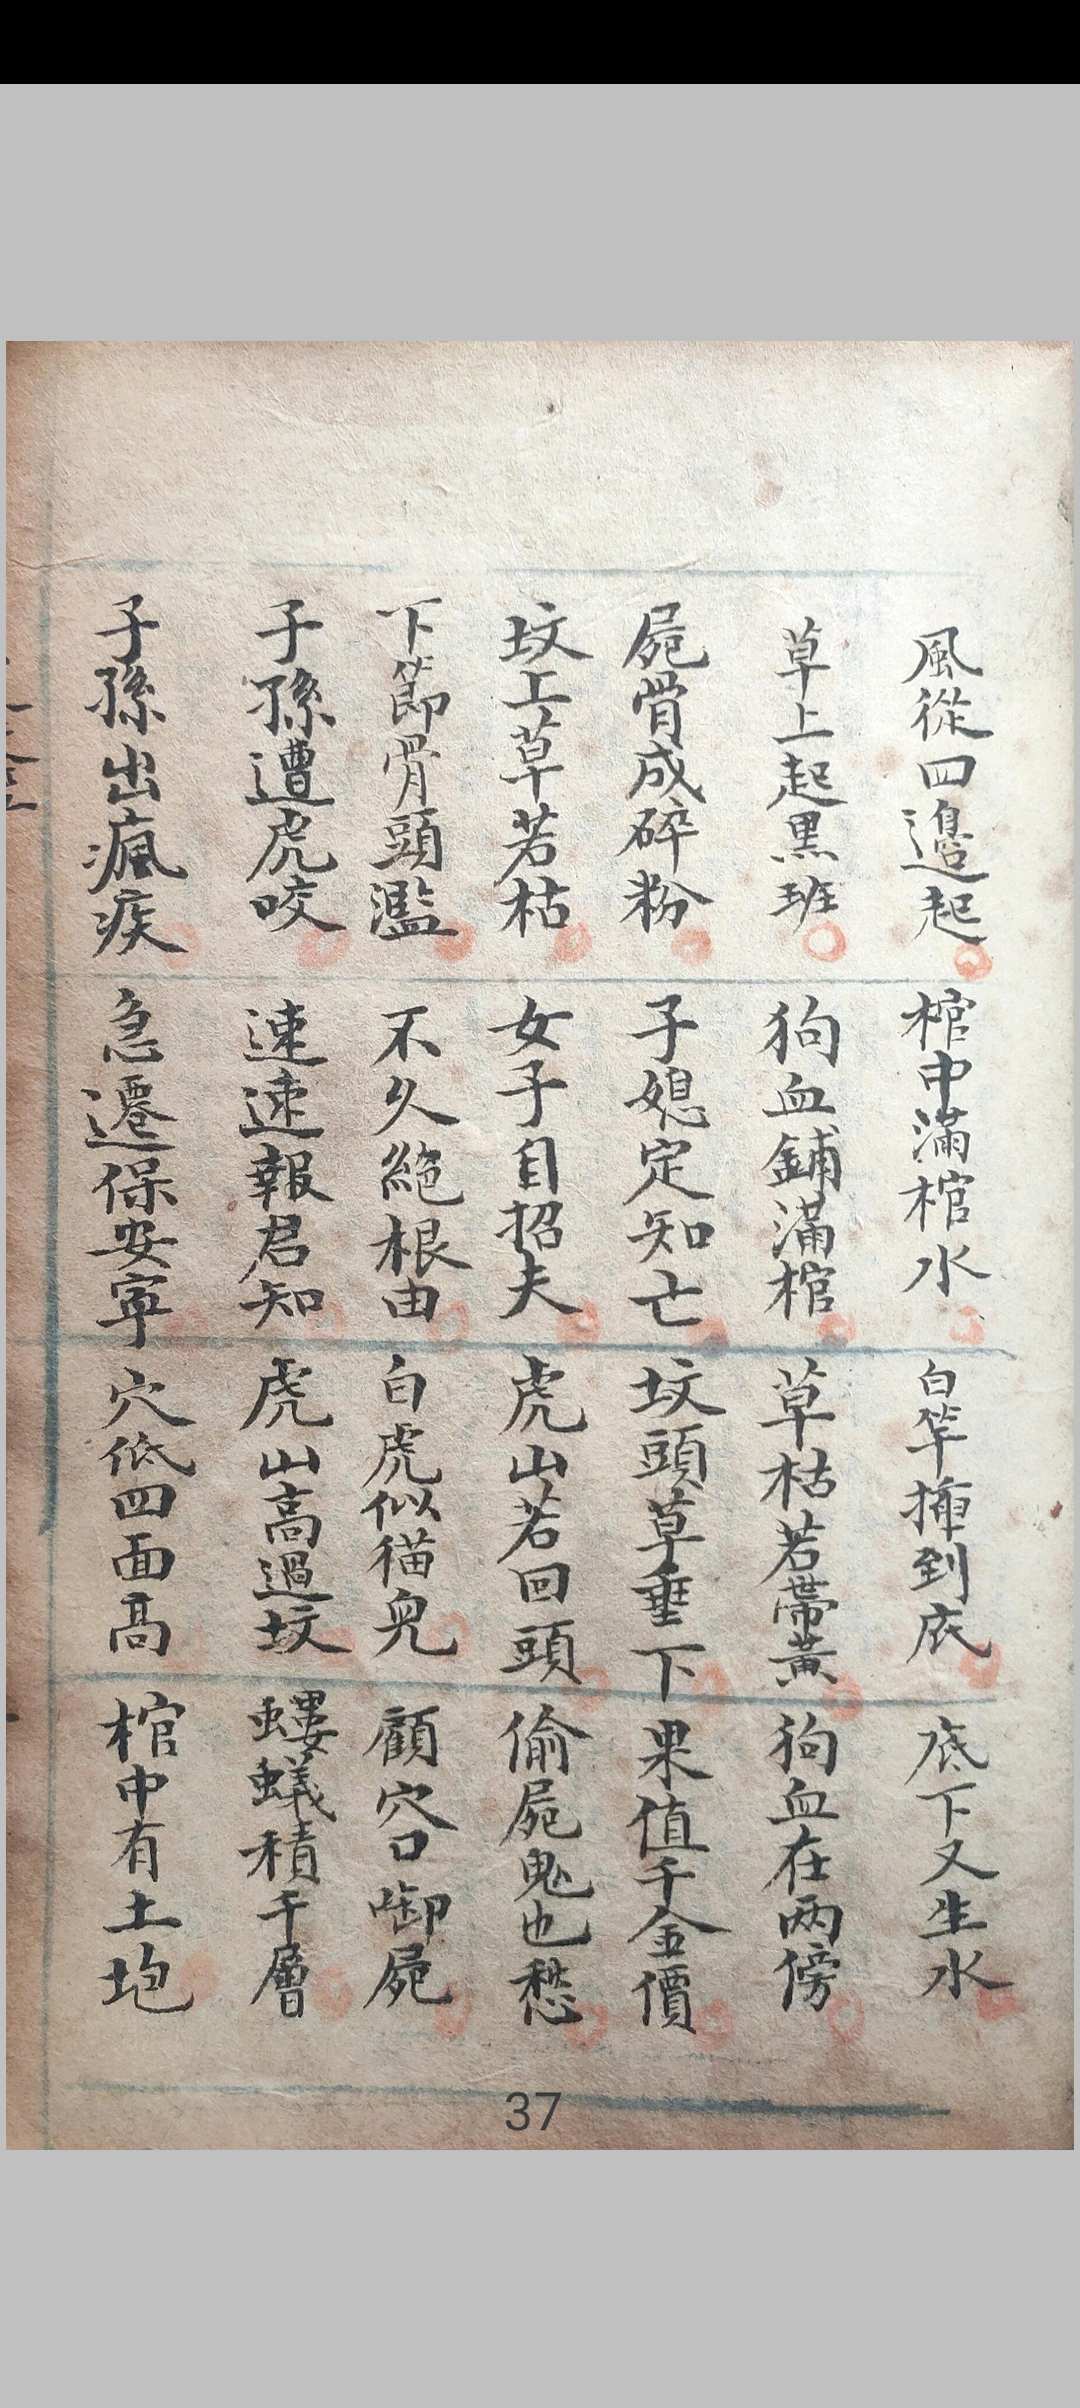 風從四邊起 棺中滿棺水 白竿揷到底 底下又生水
草上起黑班 狗血鋪滿棺 草枯若帶黃 狗血在两傍
屍骨成碎粉 子媳定知亡 坟頭草垂下 果值千金價
坟上草若枯 女子自招夫 虎山若回頭 偷屍鬼也愁
下節骨頭濫 不久絕根由 白虎似猫兒 顧穴口啣屍
子孫遭虎咬 速速報君知 虎山高過坟 螻蟻積千層
子孫出瘋疾 急遷保安寧 穴低四面高 棺中有土垉
37